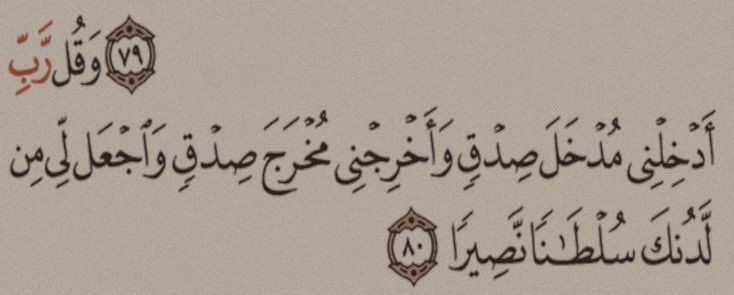 ٧٩ وَقُل رَّبِّ
أَدۡخِلۡنِى مُدۡخَلَ صِدۡقٍ وَأَخۡرِجۡنِى مُخۡرَجَ صِدۡقٍ وَٱجۡعَل لِّى مِن
لَّدُنكَ سُلۡطَـٰنًا نَّصِيرًا ٨٠